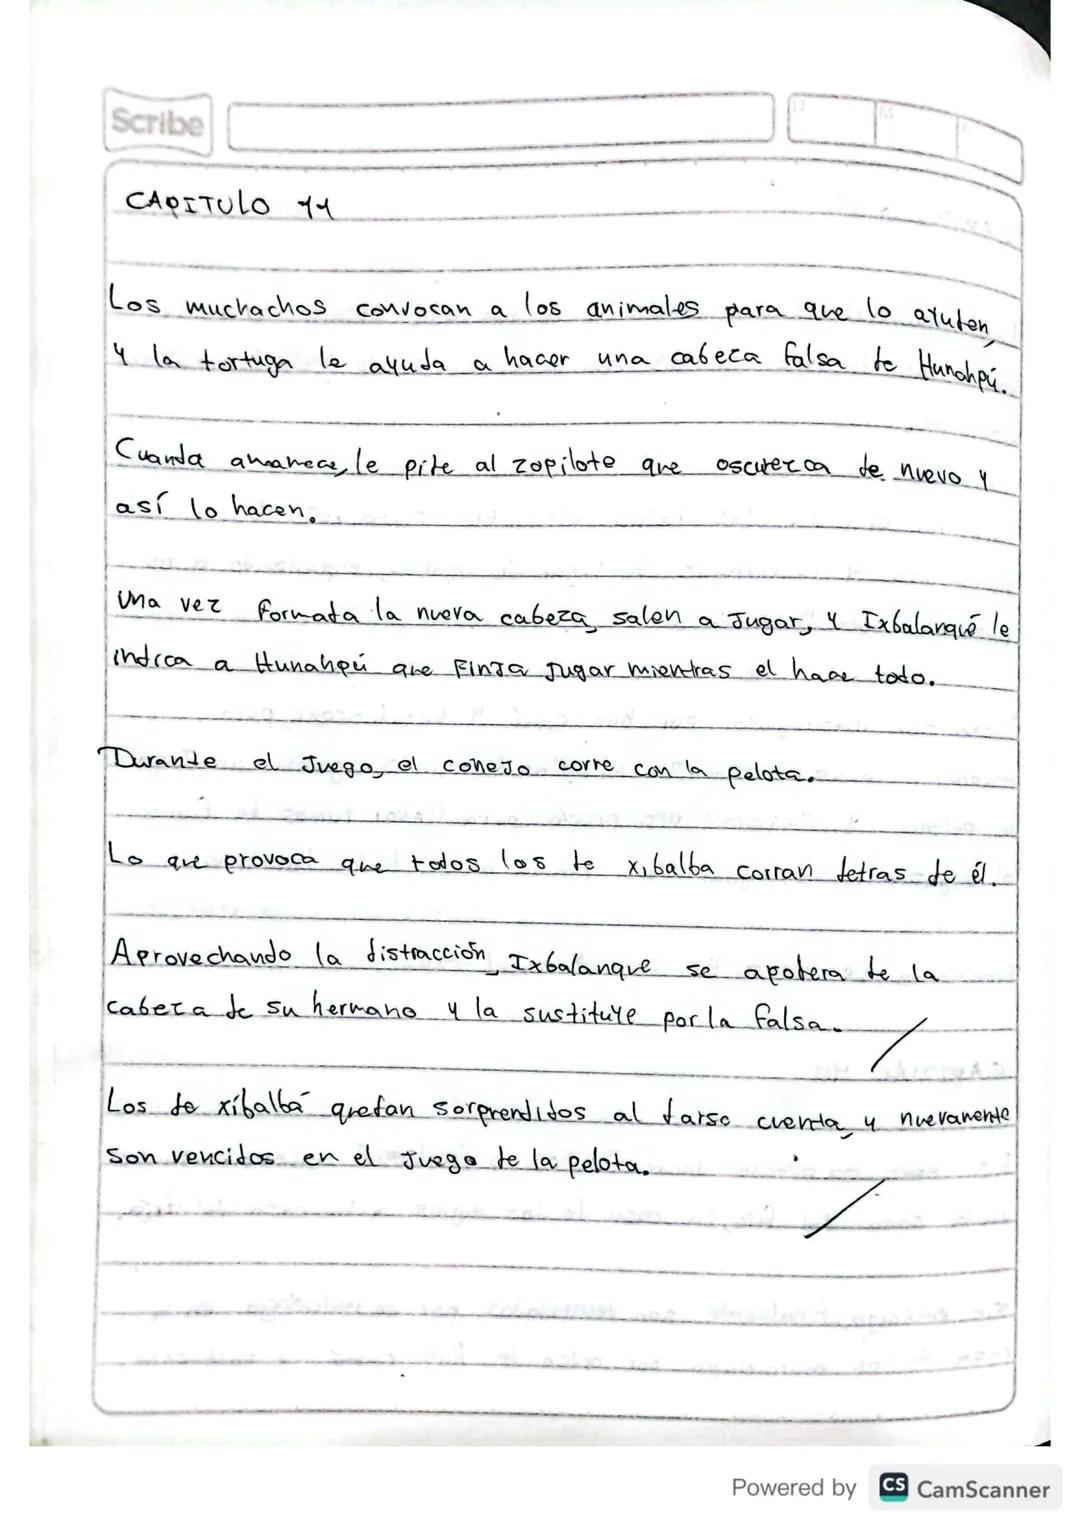 Scribe
D M A
CAPITULO 11
Los muchachos convocan a los animales para que lo ayuden,
y la tortuga le ayuda a hacer una cabeza falsa de Hunahpú.
Cuanda amanece, le pide al zopilote que oscurezca de nuevo y
así lo hacen.
Una vez formada la nueva cabeza, salen a Jugar, y Ixbalanqué le
indica a Hunahpú que Finja Jugar mientras el hace todo.
Durante el Juego, el conejo corre con la pelota.
Lo que provoca que todos los de xibalba corran detras de él.
Aprovechando la distracción, Ixbalanque se apodera de la
cabeza de su hermano y la sustituye por la falsa.
Los de xibalbá quedan sorprendidos al darse cuenta, y nuevamente
son vencidos en el Juego de la pelota.
Powered by CS CamScanner